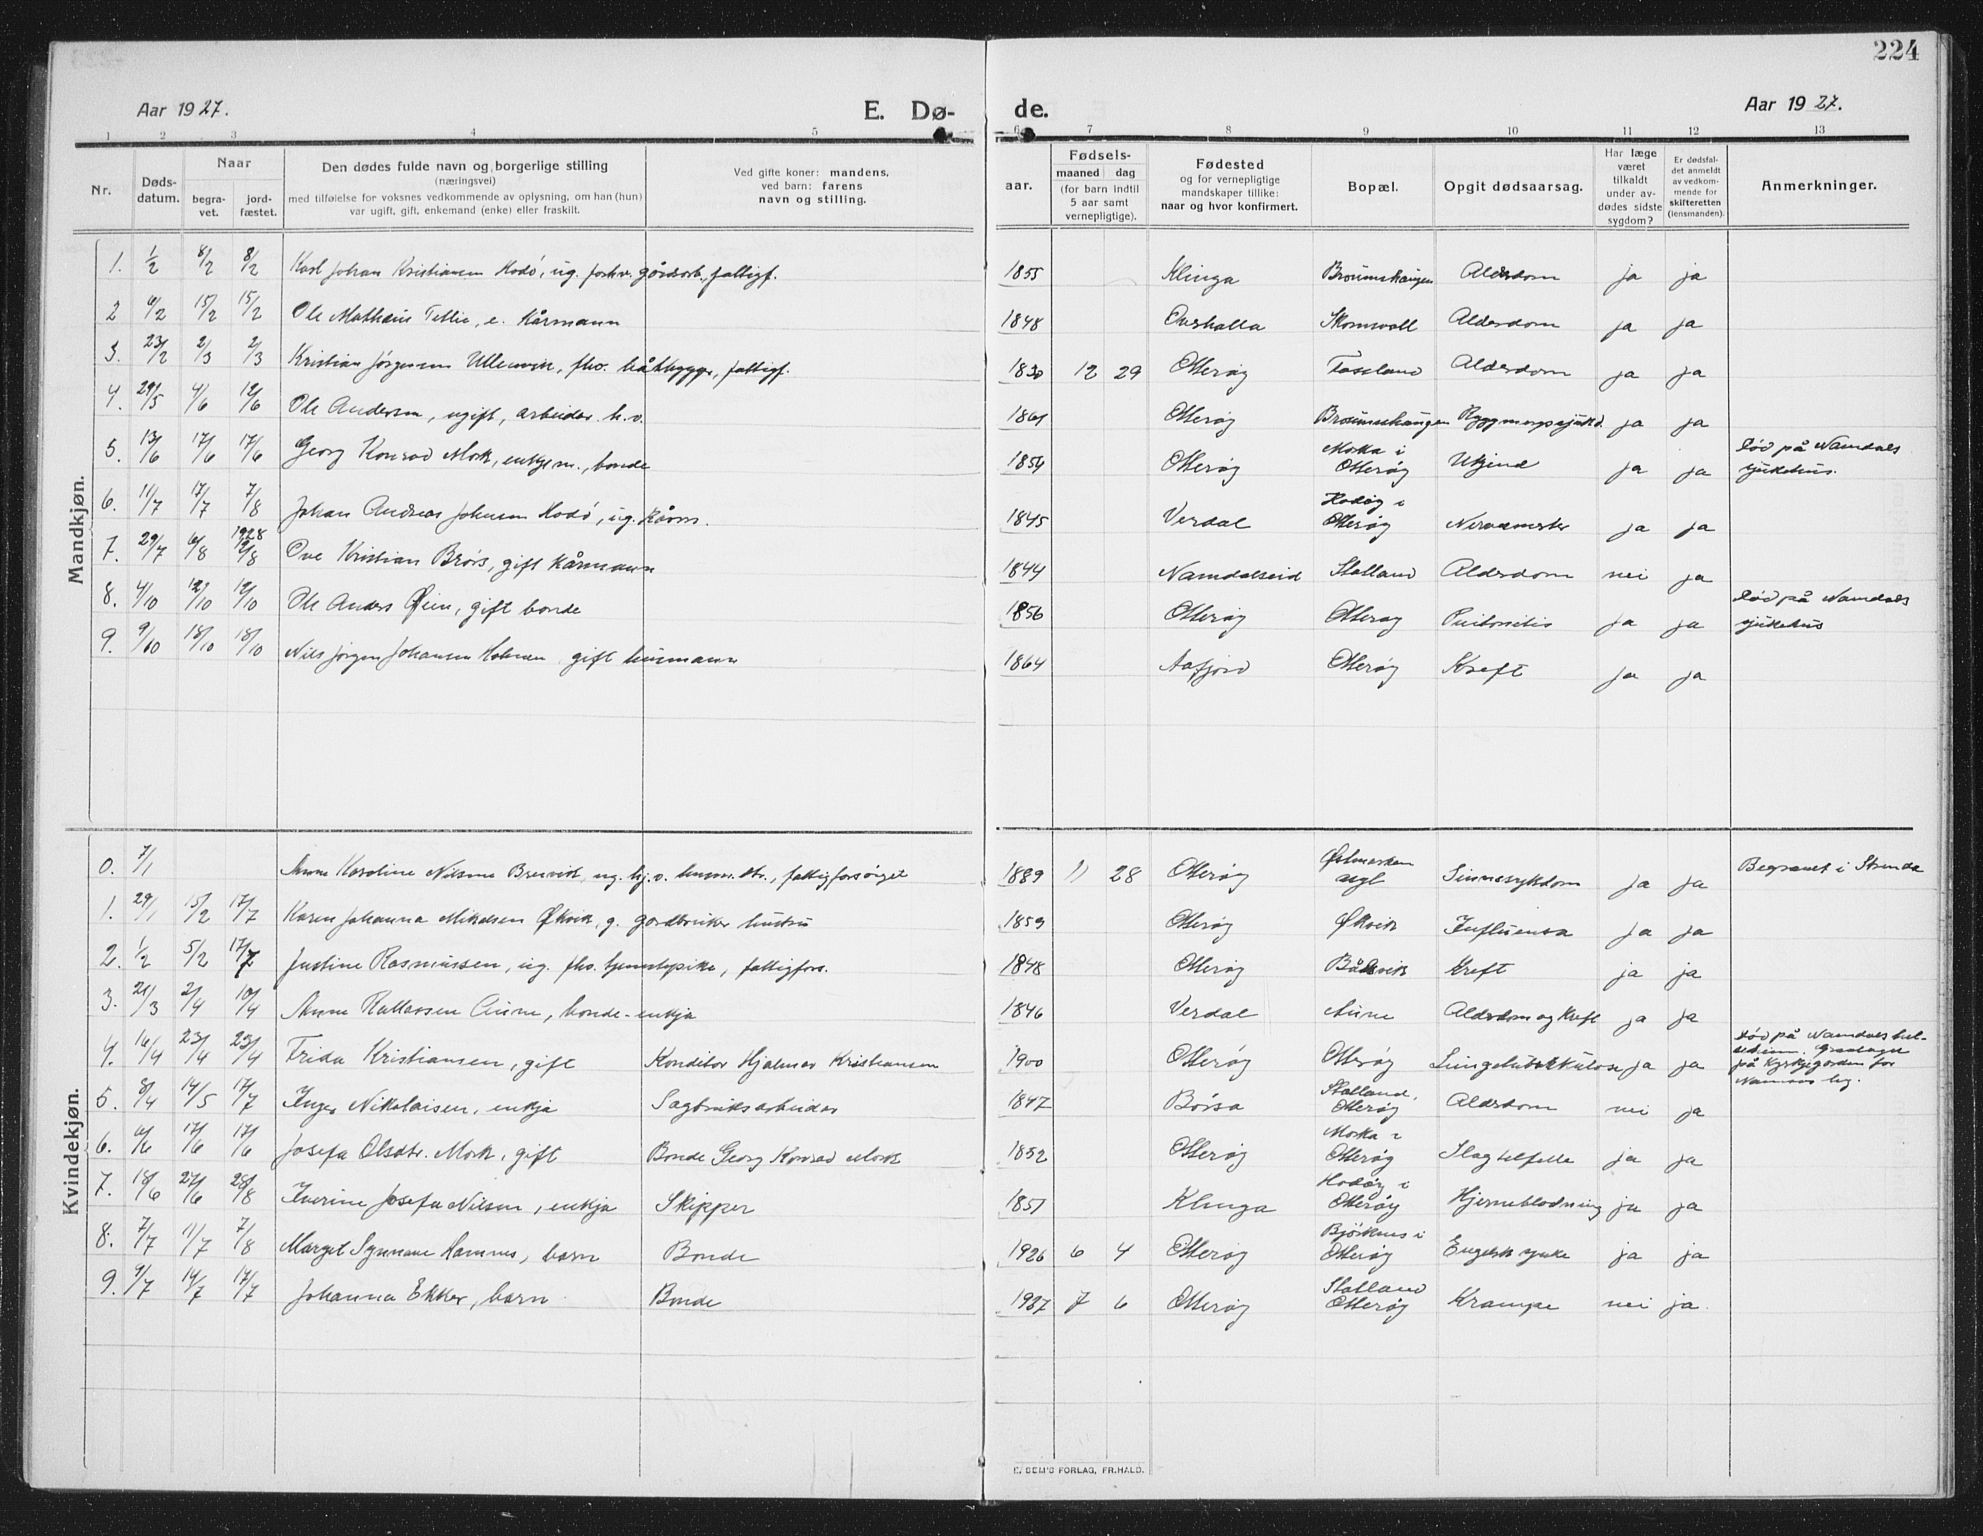 224
Aar 1927. E. Dø- de. Aar 1927.
1 2 3 4 5 6 7 8 9 10 11 12 13
Nr. Døds-datum. Naar begra-vet. jord-fæstet. Den dødes fulde navn og borgerlige stilling (næringsvei) med tilføielse for voksnes vedkommende av oplysning, om han (hun) var ugift, gift, enkemand (enke) eller fraskilt. Ved gifte koner: mandens, ved barn: farens navn og stilling. aar. Fødsels- maaned dag (for barn indtil 5 aar samt vernepligtige). Fødested og for vernepligtige mandskaper tillike: naar og hvor konfirmert. Bopæl. Opgit dødsaarsag. Har læge været tilkaldt under av-dødes sidste sygdom? Er dødsfal-det anmeldt av vedkom-mende for skifteretten (lensmanden). Anmerkninger.
Mandkjøn.
1. 1/2 8/2 8/2 Karl Johan Kristiansen Hodø, ug. forhv. gårdsarb., fattigf. 1855 Klinga Alderdom ja ja
2 6/2 15/2 15/2 Ole Mathæus Tetlie, e. kårmann 1848 Overhalla Alderdom ja ja
3. 23/2 2/3 2/3 Kristian Jørgensen fhv. båtbygger, fattigf. 1830 12 29 Otterøy Fossland Alderdom ja ja
4. 29/5 4/6 12/6 Ole Andersen, ugift, arbeider h.v. 1861 Otterøy Ryggmargssjukd. ja ja
5. 13/6 17/6 17/6 Georg Konrad Mork, enkjem., bonde 1854 Otterøy Morka i Otterøy Ukjend ja ja Død på Namdals sjukehus.
6. 11/7 17/7 7/8 Johan Andreas Johnsen Hodø, ug. kårm. 1845 Verdal Hodøy i Otterøy ja ja
7. 29/7 6/8 1928 12/8 Ove Kristian Brørs, gift kårmann 1844 Namdalseid Statland Alderdom nei ja
8. 4/10 12/10 12/10 Ole Anders Øien, gift bonde 1856 Otterøy Otterøy ja ja Død på Namdals sjukehus
9. 9/10 18/10 18/10 Nils Jørgen Johansen Holmen gift husmann 1864 Aafjord Otterøy Kreft ja ja
Kvindekjøn.
0. 7/1 Anna Karoline Nilsine Breivik, ug. hj.v. husm.dtr., fattigforsørget 1889 11 28 Otterøy Østmarken asyl Sinnssykdom ja ja Begravet i Strinda
1. 29/1 15/2 17/7 Karen Johanna Mikalsen Økvik, g. gardbruker hustru 1859 Otterøy Økvik Influensa ja ja
2. 1/2 5/2 17/7 Justine Rasmussen, ug. fhv. tjenestepike, fattigfors. 1848 Otterøy Kreft ja ja
3. 21/3 2/4 10/4 Anne Aune, bonde-enkja 1846 Verdal Aune Alderdom og kreft ja ja
4. 16/4 23/4 23/4 Frida Kristiansen, gift Konditor Hjalmar Kristiansen 1900 Otterøy Otterøy Lungetuberkulose ja ja Død på Namdals hel-seheim. Gravlagt på kyrkjegarden for Namsos by.
5. 8/4 14/5 17/7 Inger Nikolaisen, enkja Sagbruksarbeider 1847 Børsa Statland, Otterøy Alderdom nei ja
6. 6/6 17/6 17/6 Josefa Olsdtr. Mork, gift Bonde Georg Konrad Mork 1852 Otterøy Morka i Otterøy Slagtilfelle ja ja
7. 18/6 27/6 28/8 Iverine Josefa Nilsen, enkja Skipper 1851 Klinga Hodøy i Otterøy Hjerneblødning ja ja
8. 7/7 11/7 7/8 Margit Synnøve Hamnes, barn Bonde 1926 6 4 Otterøy Otterøy Engelsk sjuke ja ja
9. 9/7 14/7 17/7 Johanna Ekker, barn Bonde 1927 7 6 Otterøy Statland Otterøy Krampe nei ja.
E. SEM'S FORLAG, FR.HALD.